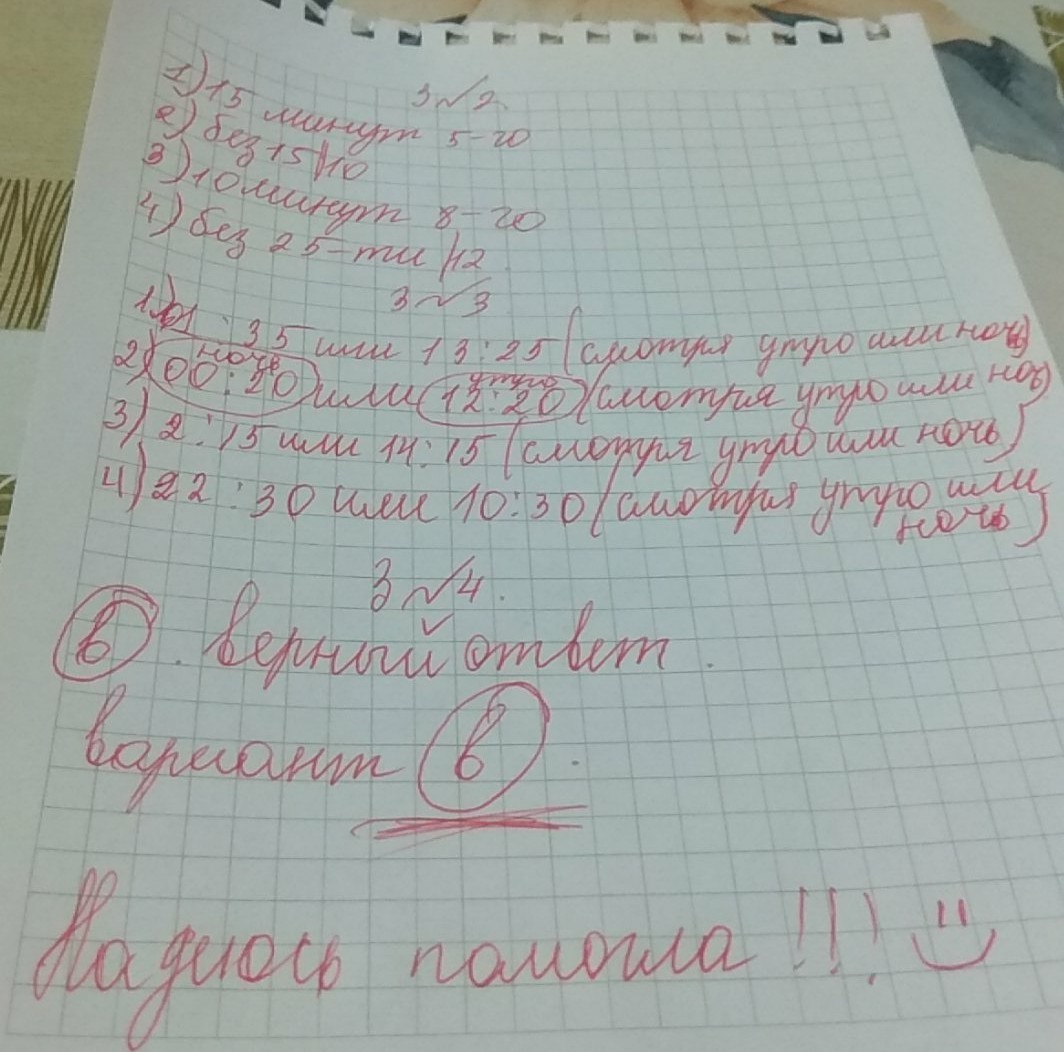 З№2.
1) 15 минут 5-го
2) без 15 10
3) 10 минут 8-го
4) без 25-ти 12
З№3
1) 01:35 или 13:25 (смотря утро или ночь)
2) 00:20 ночь или 12:20 утро (смотря утро или ноч)
3) 2:15 или 14:15 (смотря утро или ночь)
4) 22:30 или 10:30 (смотря утро или
ночь)
З№4.
в. верный ответ.
вариант в.
Надиюсь помогла!!!